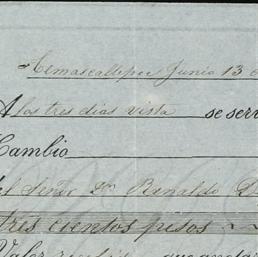 Temascaltepec Junio 13 d
A los tres dias vista se serv
Cambio
el Señor Dn Reinaldo
tres cientos pesos
Valor